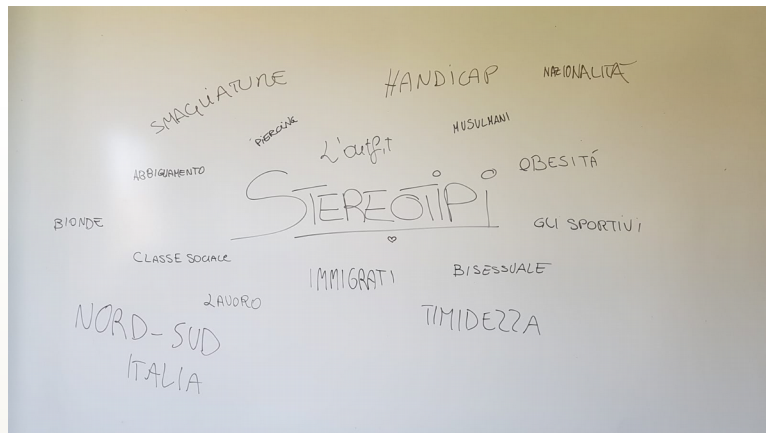 SMAGLIATURE
HANDICAP
NAZIONALITÀ
PIERCING
L'outfit
MUSULMANI
ABBIGLIAMENTO
OBESITÁ
STEREOTIPI
BIONDE
GLI SPORTIVI
CLASSE SOCIALE
IMMIGRATI
BISESSUALE
LAVORO
NORD-SUD
ITALIA
TIMIDEZZA